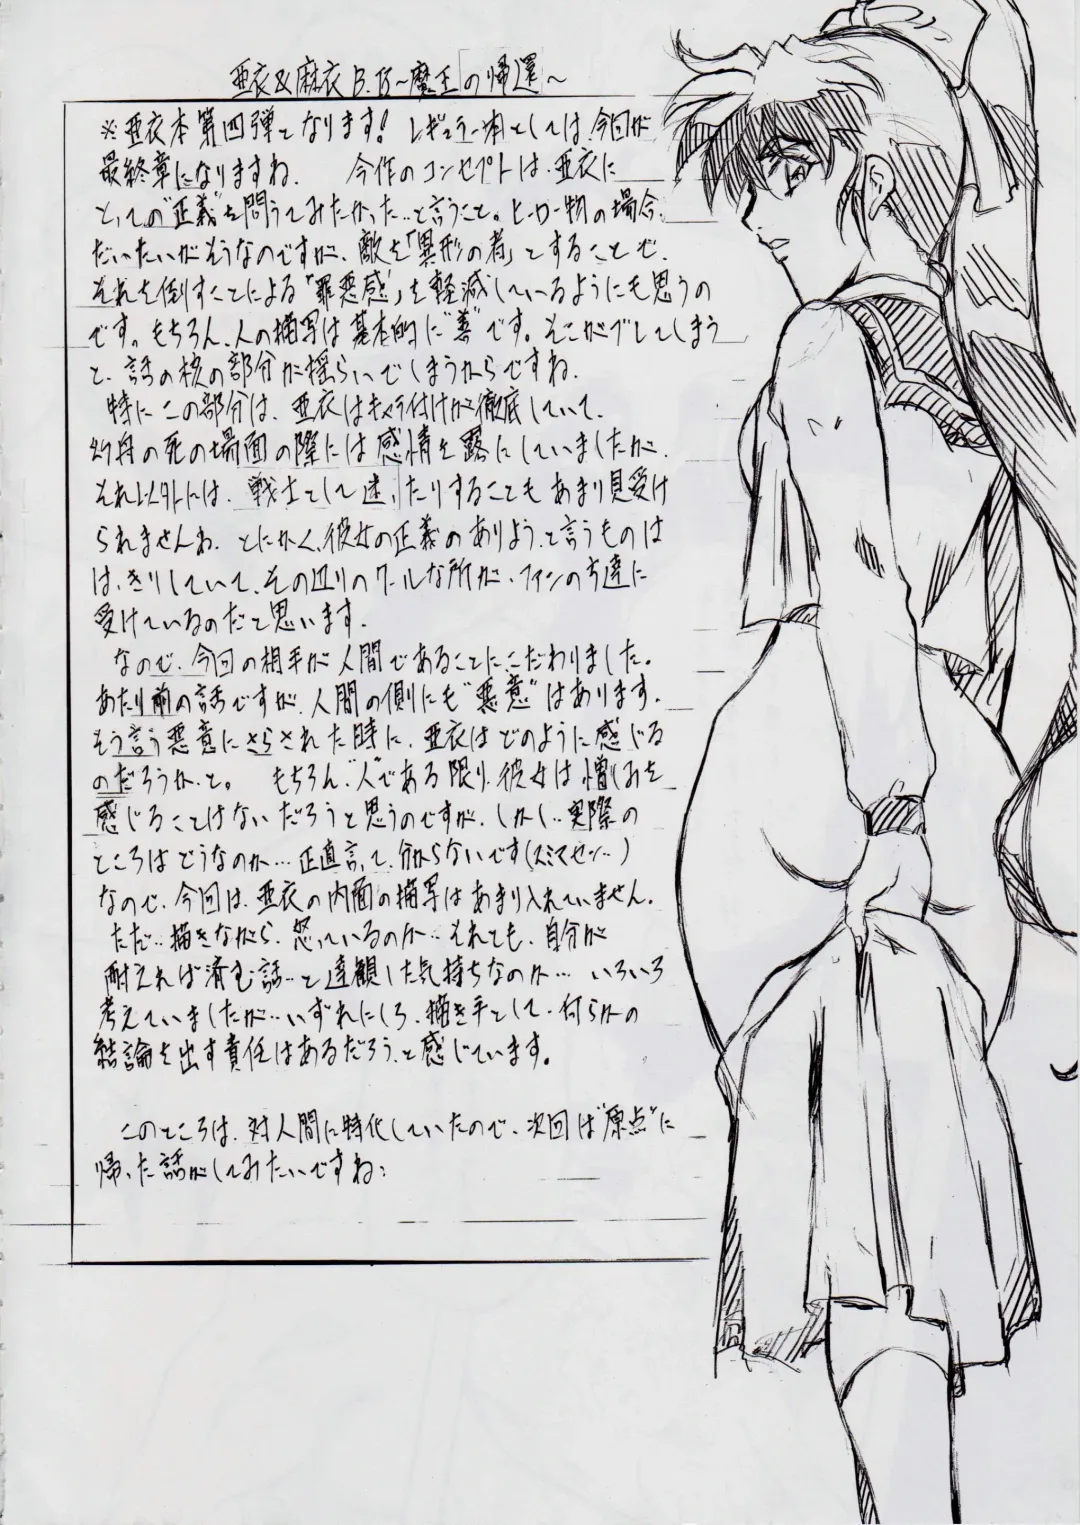 亜衣&麻衣 B.B~魔王「の帰還~
※亜衣本第四弾となります! レギュラー本としては、今回が
最終章になりますね. 今作のコンセプトは、亜衣に
とっての"正義"を問うてみたかった…と言うこと。ヒーロー物の場合、
だいたいがそうなのですが、敵を「異形の者」とすることで、
それを倒すことによる「罪悪感」を軽減しているようにも思うの
です。もちろん、人の描写は基本的に"善"です。そこがブレてしまう
と、話の核の部分が揺らいでしまうからですね.
特にこの部分は、亜衣はキャラ付けが徹底していて、
幻舟の死の場面の際には感情を露にしていましたが、
それ以外には、戦士として迷ったりすることもあまり見受け
られませんね. とにかく、彼女の正義のありようと言うものは
はっきりしていて、その辺りのクールな所が、ファンの方達に
受けているのだと思います.
なので、今回の相手が人間であることにこだわりました。
あたり前の話ですが、人間の側にも"悪意"はあります.
そう言う悪意にさらされた時に、亜衣はどのように感じる
のだろうか、と。 もちろん、"人"である限り、彼女は憎しみを
感じることはないだろうと思うのですが、しかし…実際の
ところはどうなのか…正直言って、分からないです(スミマセン…)
なので、今回は、亜衣の内面の描写はあまり入れていません.
ただ…描きながら、怒っているのか…それとも、自分が
耐えれば済む話…と達観した気持ちなのか… いろいろ
考えていましたが…いずれにしろ、描き手として、何らかの
結論を出す責任はあるだろうと感じています。
このところは、対人間に特化していたので、次回は"原点"に
帰った話がしてみたいですね: